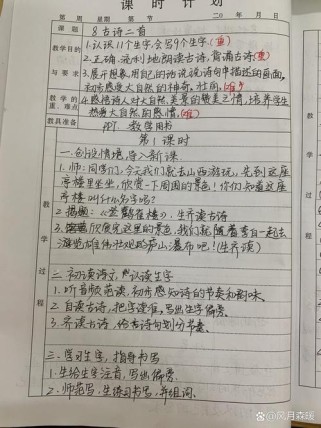 课时计划
第 周 星期 第 节 二〇 年 月 日
课题 8古诗二首
教学目的与要求
1.认识11个生字,会写9个生字。(重)
2.正确、流利地朗读古诗,背诵古诗(重)
3.展开想象,用自己的话说说诗句中描述的画面,
初步感受大自然的神奇、壮阔。(难)
教学的重、难点
4.感悟诗人对大自然美景的赞美之情,培养学生
热爱大自然的感情。(难)
教具准备 PPT 教学用书
第1课时
教学过程
一、创设情境,导入新课
1.师:同学们,今天我们就去山西游玩,先到这座
亭楼里坐坐,欣赏一下周围的景色!你们知道这座
亭楼叫什么名字吗?
2.揭题:《登鹳雀楼》,生齐读古诗
3.欣赏完这里的景色,我们就随着李白一起去
游览雄伟壮观的庐山瀑布吧!(生齐读)
二、初读诗文,认读生字
1.听音频范读,初步感知诗的节奏和韵味。
2.自读古诗,把字读准,写出生字偏旁。
3.齐读古诗,给古诗句划分节奏。
三、学习生字,指导书写
1.生给生字注音,写出偏旁。
2.师范写,生练习书写,并组词。
@风月森暖